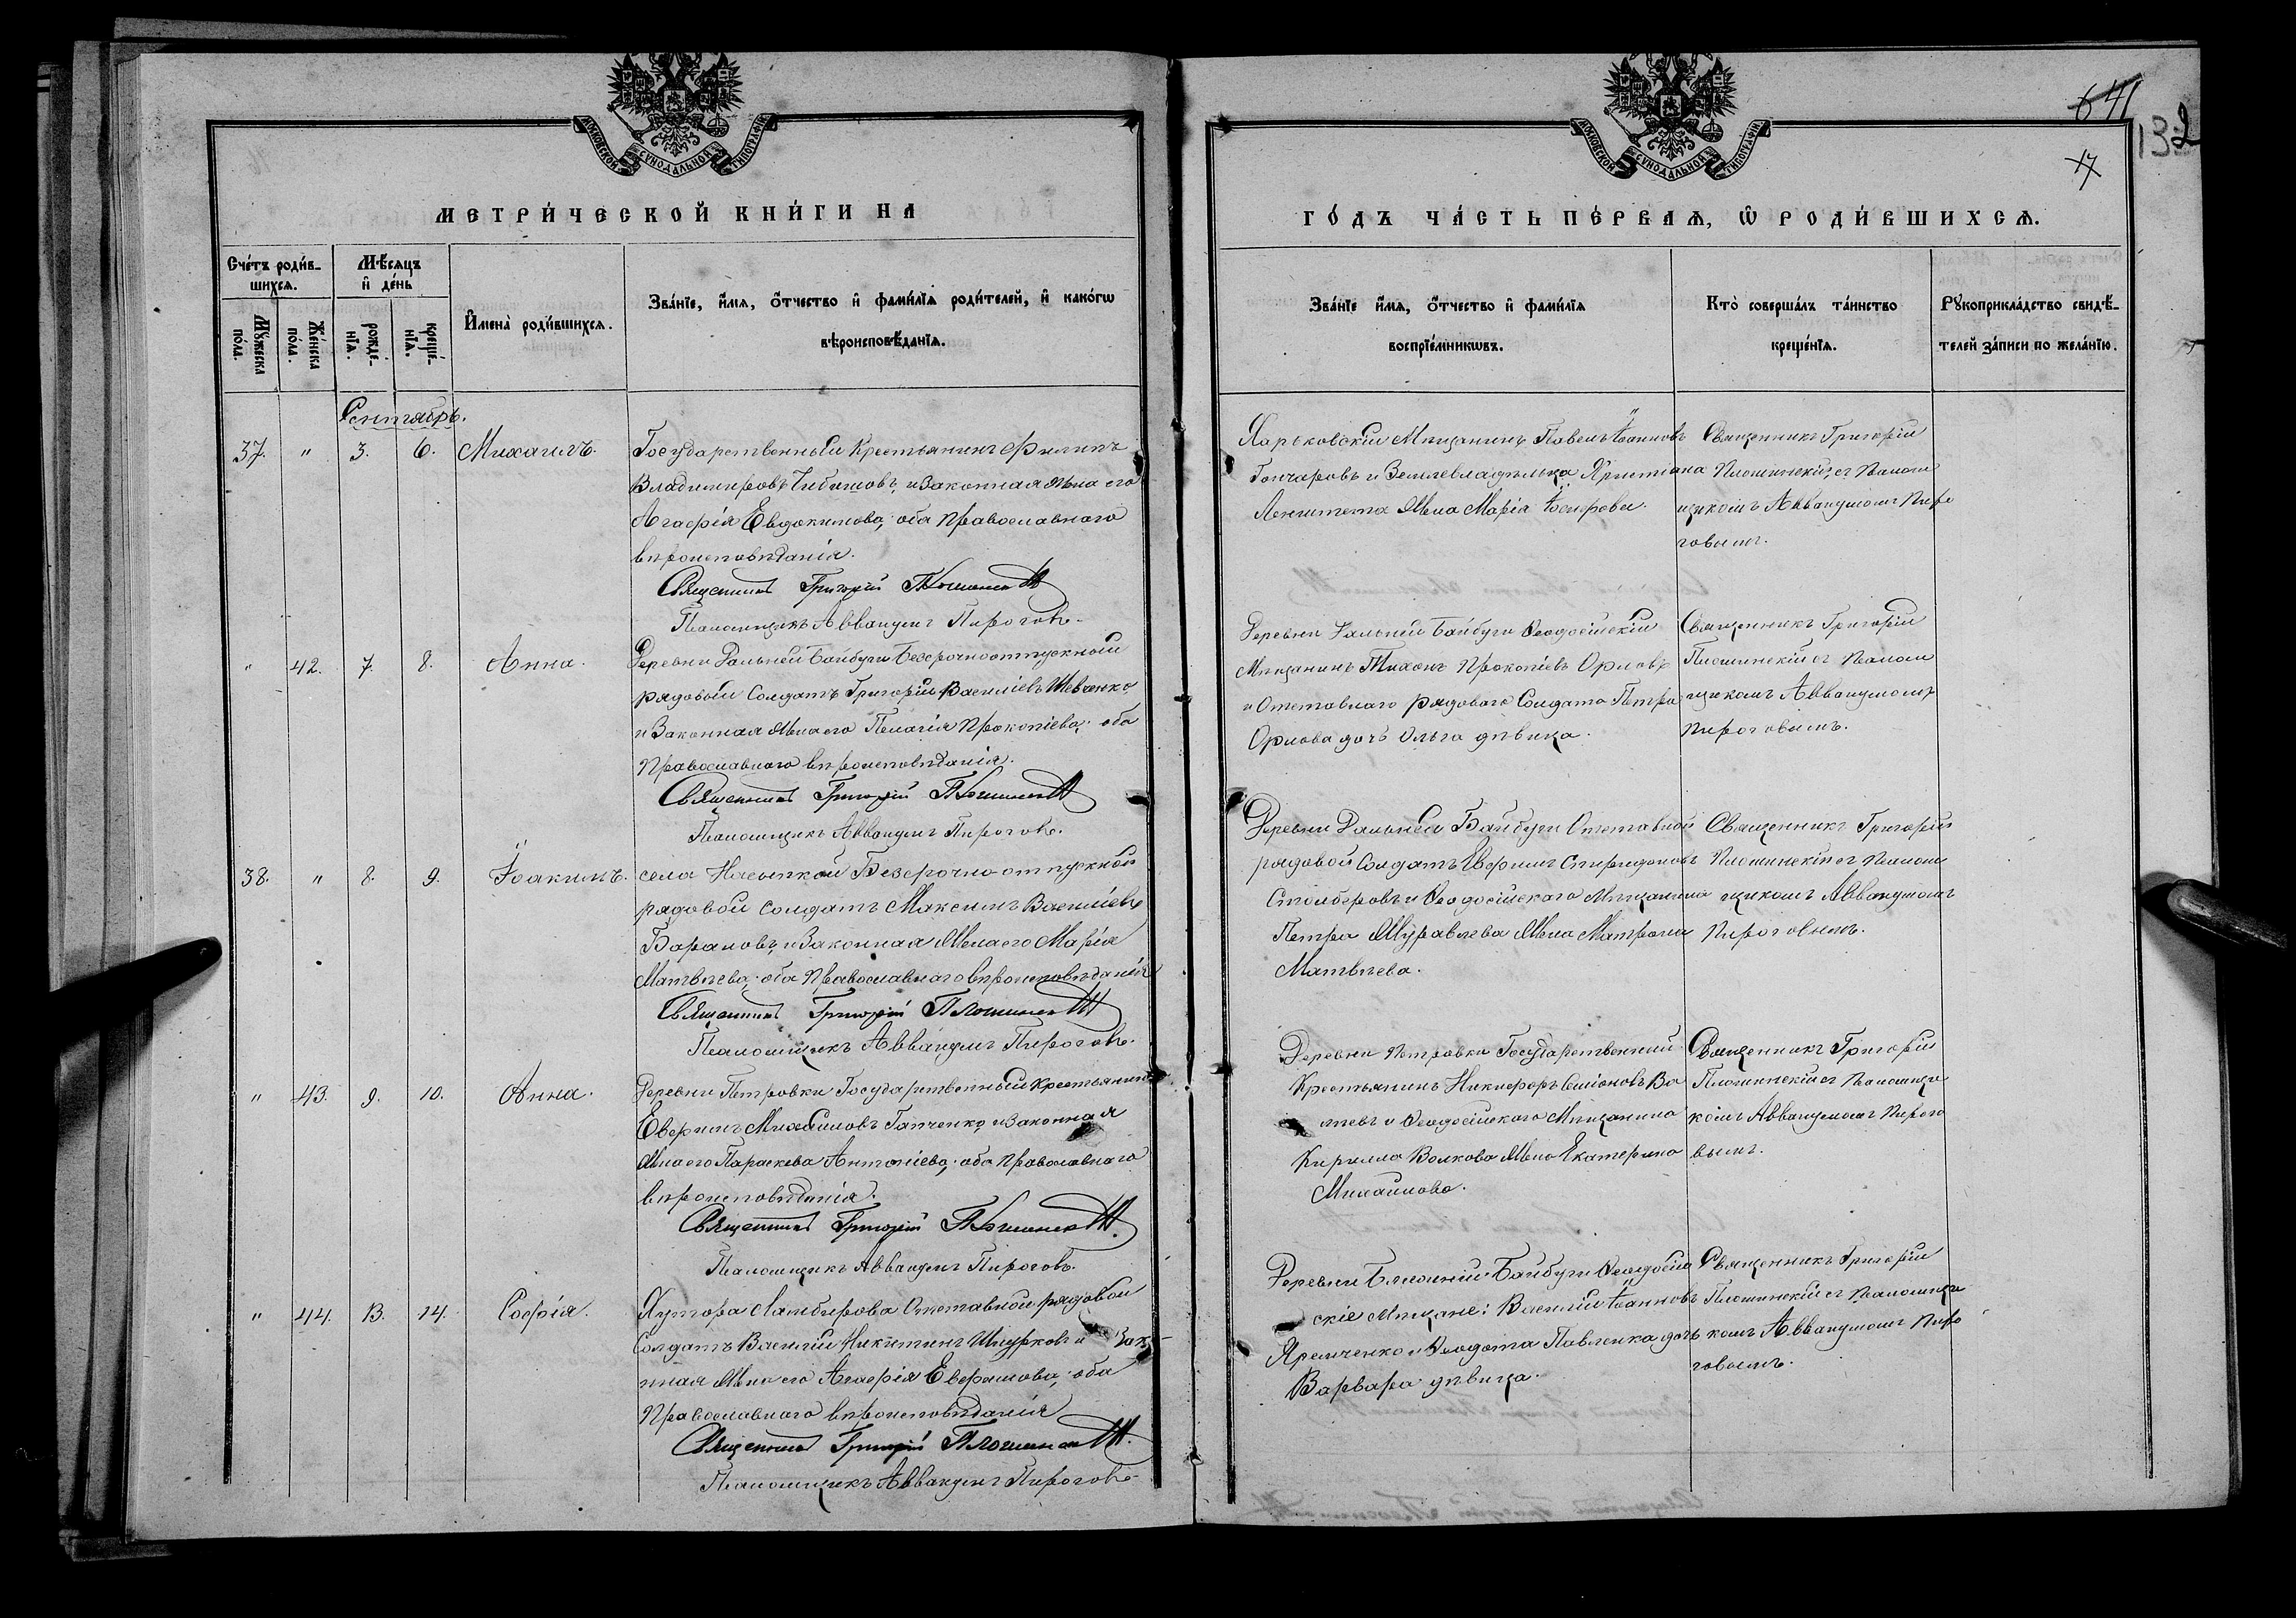 МОСКОВСКОЙ СѴНОДАЛЬНОЙ ТИПОГРАФІИ
МЕТРИ́ЧЕСКОЙ КНИ́ГИ НА
Сче́тъ роди́в-
шихсѧ.
Мѣ́сѧцъ
и҆ де́нь
Мꙋ́жеска
по́ла.
Же́нска
по́ла.
рожде́-
нїѧ.
креще́-
нїѧ.
И҆мена̀ роди́вшихсѧ.
Зва́нїе, и҆́мѧ, ѻ҆́тчество и҆ фами́лїѧ роди́телей, и҆ како́гѡ
вѣроисповѣ́данїѧ.
Сентябрь.
37. " 3. 6. Михаилъ.
Государственный Крестьянинъ Филипъ
Владимировъ Чибишовъ, и Законная Жена его
Агафія Евдокимова, оба Православнаго
вѣроисповѣданія.
Священникъ Григорій Плошинскій
Псаломщикъ Аввакумъ Пироговъ.
" 42. 7. 8. Анна.
Деревни Дальней Байбуги Безсрочноотпускной
рядовый Солдатъ Григорій Василіевъ Шевченко,
и Законная Жена его Пелагія Прокопіева, оба
Православнаго вѣроисповѣданія.
Священникъ Григорій Плошинскій
Псаломщикъ Аввакумъ Пироговъ.
38. " 8. 9. Іоакимъ.
села Насыпкой Безсрочно отпускной
рядовой солдатъ Максимъ Василіевъ
Барановъ, и Законная Жена его Марія
Матвѣева, оба Православнаго вѣроисповѣданія
Священникъ Григорій Плошинскій
Псаломщикъ Аввакумъ Пироговъ.
" 43. 9. 10. Анна.
Деревни Петровки Государственный Крестьянинъ
Евфимъ Михаиловъ Гапченко, и Законная
Жена его Параскева Антоніева, оба Православнаго
вѣроисповѣданія.
Священникъ Григорій Плошинскій.
Псаломщикъ Аввакумъ Пироговъ.
" 44. 13. 14. Софія.
Хутора Ламбирова Отставной рядовой
Солдатъ Василій Никитинъ и Зако-
нная Жена его Агафія Ефремова, оба
Православнаго вѣроисповѣданія
Священникъ Григорій Плошинскій.
Псаломщикъ Аввакумъ Пироговъ
641
132
17
МОСКОВСКОЙ СѴНОДАЛЬНОЙ ТИПОГРАФІИ
ГО́ДЪ ЧА́СТЬ ПЕ́РВАѦ, Ѡ҆ РОДИ́ВШИХСѦ.
Зва́нїе и҆́мѧ, ѻ҆́тчество и҆ фами́лїѧ
воспрїе́мникѡвъ.
Кто̀ соверша́лъ та́инство
креще́нїѧ.
Рꙋкоприкла́дство свидѣ́-
телей за́писи по жела́нїю.
Харьковскій Мѣщанинъ Павелъ Іоанновъ
Гончаровъ и Землевладѣльца Христіана
Жена Марія Іосифова.
Священникъ Григорій
Плошинскій, съ Псалом
щикомъ Аввакумомъ Пиро
говымъ.
Деревни Дальней Байбуги Ѳеодосійскій
Мѣщанинъ Тихонъ Прокопіевъ Орловъ
и Отставнаго рядоваго Солдата Петра
Орлова дочь Ольга дѣвица.
Священникъ Григорій
Плошинскій съ Псалом
щикомъ Аввакумомъ
Пироговымъ.
Деревни Дальней Байбуги Отставной
рядовой Солдатъ Евфимъ Спиридоновъ
Столберовъ и Ѳеодосійскаго Мѣщанина
Петра Журавлева Жена Матрона
Матвѣева.
Священникъ Григорій
Плошинскій съ Псалом
щикомъ Аввакумомъ
Пироговымъ.
Деревни Петровки Государственный
Крестьянинъ Никифоръ Симоновъ Во
и Ѳеодосійскаго Мѣщанина
Кирилла Волкова Жена Екатерина
Михаилова.
Священникъ Григорій
Плошинскій съ Псаломщи
комъ Аввакумомъ Пирого
вымъ.
Деревни Ближній Байбуги Ѳеодосій
скіе Мѣщане: Василій Іоанновъ
Яремченко и Ѳеодота Павленка дочь
Варвара дѣвица.
Священникъ Григорій
Плошинскій съ Псаломщи
комъ Аввакумомъ Пиро
говымъ.